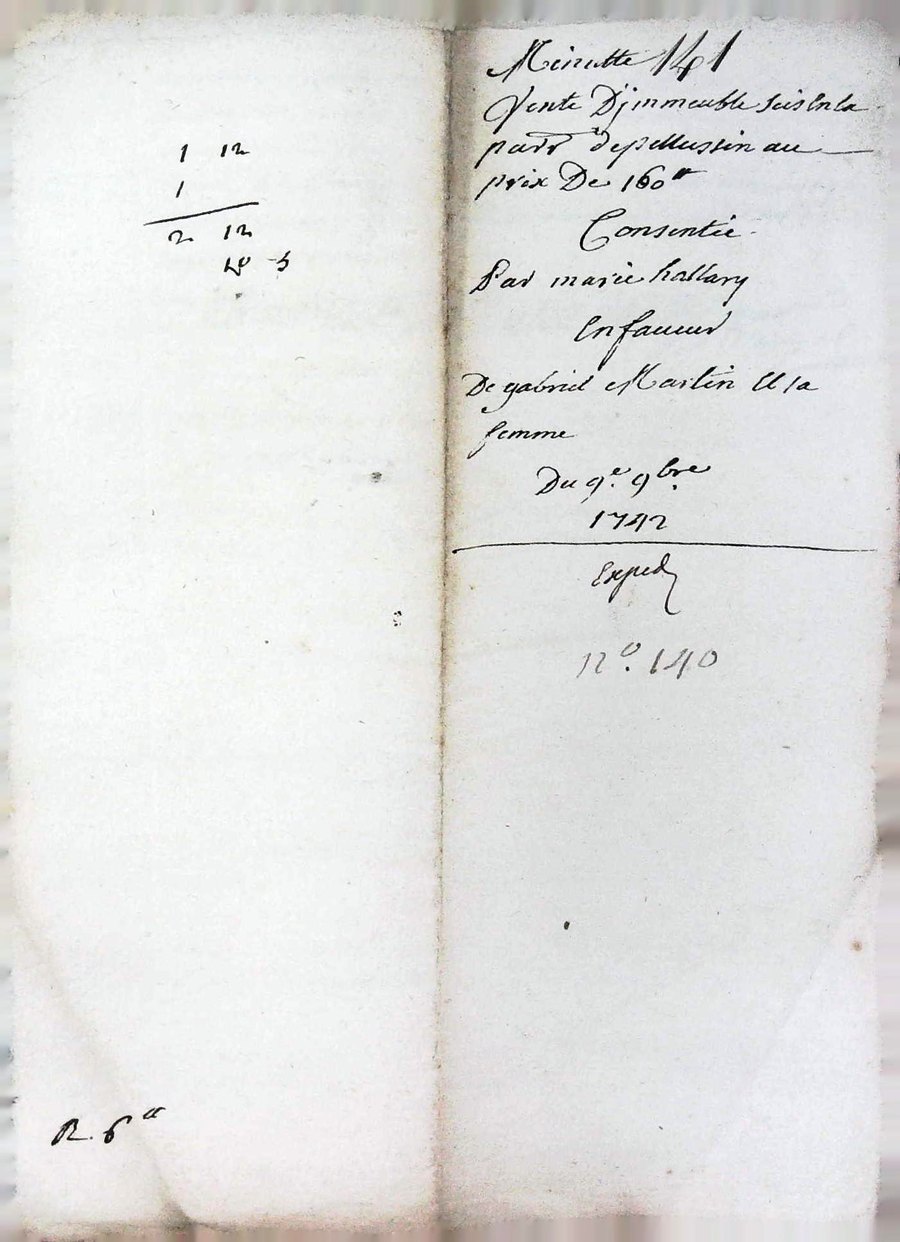 1 12
1
2 12
5
R. 6ᵗᵗ
Minutte 141
Vente D'jmmeuble sis En la
parr̃ de pellussin au
prix De 160ᵗᵗ
Consentie
Par marie hallary
En faueur
De gabriel Martin Et sa
femme
Du 9.ᵉ 9.ᵇʳᵉ
1742
Exped
n.º 140